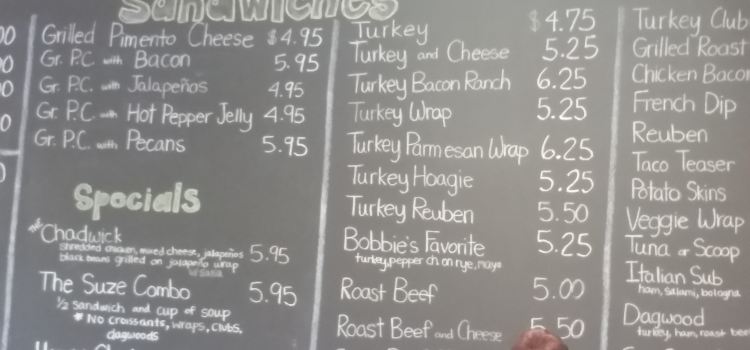 Sandwiches
00
Grilled Pimento Cheese $4.95
Gr. P.C. with Bacon 5.95
Gr. P.C. with Jalapeños 4.95
0
Gr. P.C. with Hot Pepper Jelly 4.95
Gr. P.C. with Pecans 5.95
Specials
Chadwick
shredded chicken, mixed cheese, jalapeños 5.95
black beans grilled on jalapeño wrap
w/salsa
The Suze Combo 5.95
½ sandwich and cup of soup
* No croissants, wraps, clubs,
dagwoods
Turkey $4.75
Turkey and Cheese 5.25
Turkey Bacon Ranch 6.25
Turkey Wrap 5.25
Turkey Parmesan Wrap 6.25
Turkey Hoagie 5.25
Turkey Reuben 5.50
Bobbie's Favorite 5.25
turkey, pepper ch on rye, mayo
Roast Beef 5.00
Roast Beef and Cheese 5.50
Turkey Club
Grilled Roast
Chicken Bacon
French Dip
Reuben
Taco Teaser
Potato Skins
Veggie Wrap
Tuna or Scoop
Italian Sub
ham, salami, bologna
Dagwood
turkey, ham, roast beef